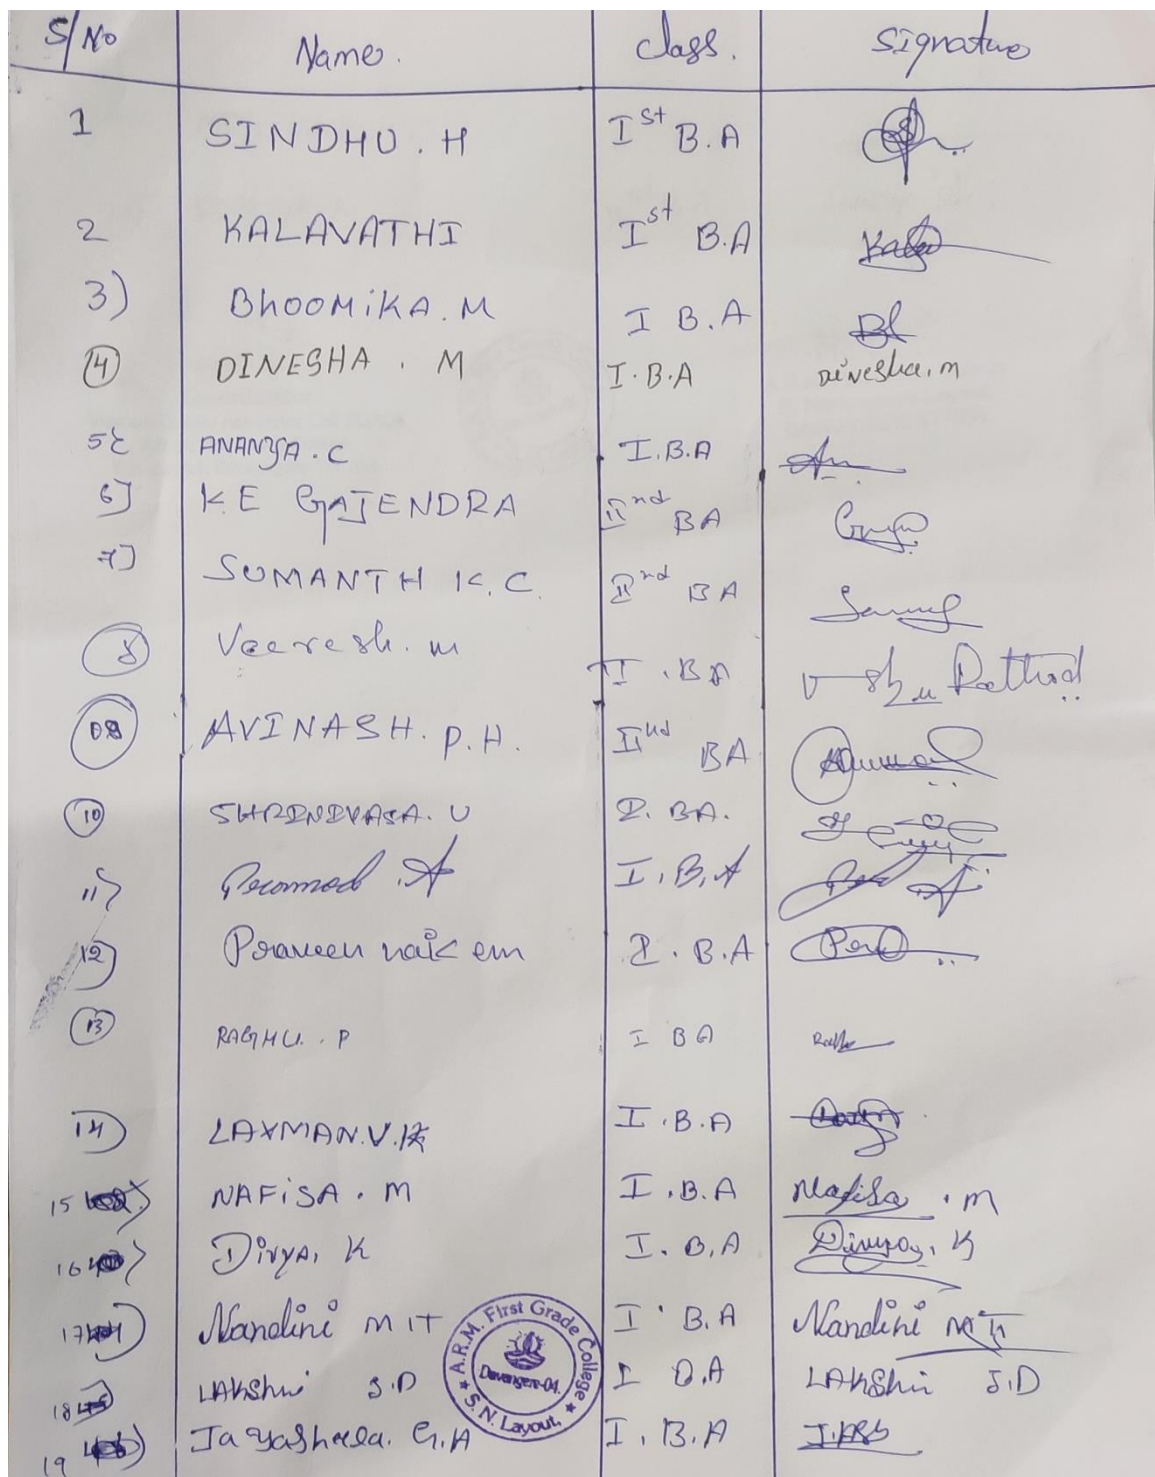 S/No Name. Class. Signature
1 SINDHU. H Ist B.A
2 KALAVATHI Ist B.A
3) BhooMiKA. M I B.A
4 DINESHA. M I.B.A Dinesha.m
5 ANANYA.C I.B.A
6] K.E GAJENDRA IInd BA
7] SUMANTH K.C. IInd BA
8 Veeresh. m I.BA Rathod
09 AVINASH. P.H. IInd BA
10 SHRINIVASA. U I. BA.
11) Pramod .A I.B.A
12) Praveen naik em I.B.A
13 RAGHU. P I BA
14) LAXMAN.V.K I.B.A
15 NAFiSA. M I.B.A Nafisa .M
16 Divya. K I.B.A Divya. K
17 Nandini M I T I.B.A Nandini
18 LAKShmi S.D I B.A LAKShmi S.D
19 Jayasheela. G.A I.B.A
A.R.M. First Grade College
Davangere-04.
★ S.N. Layout. ★